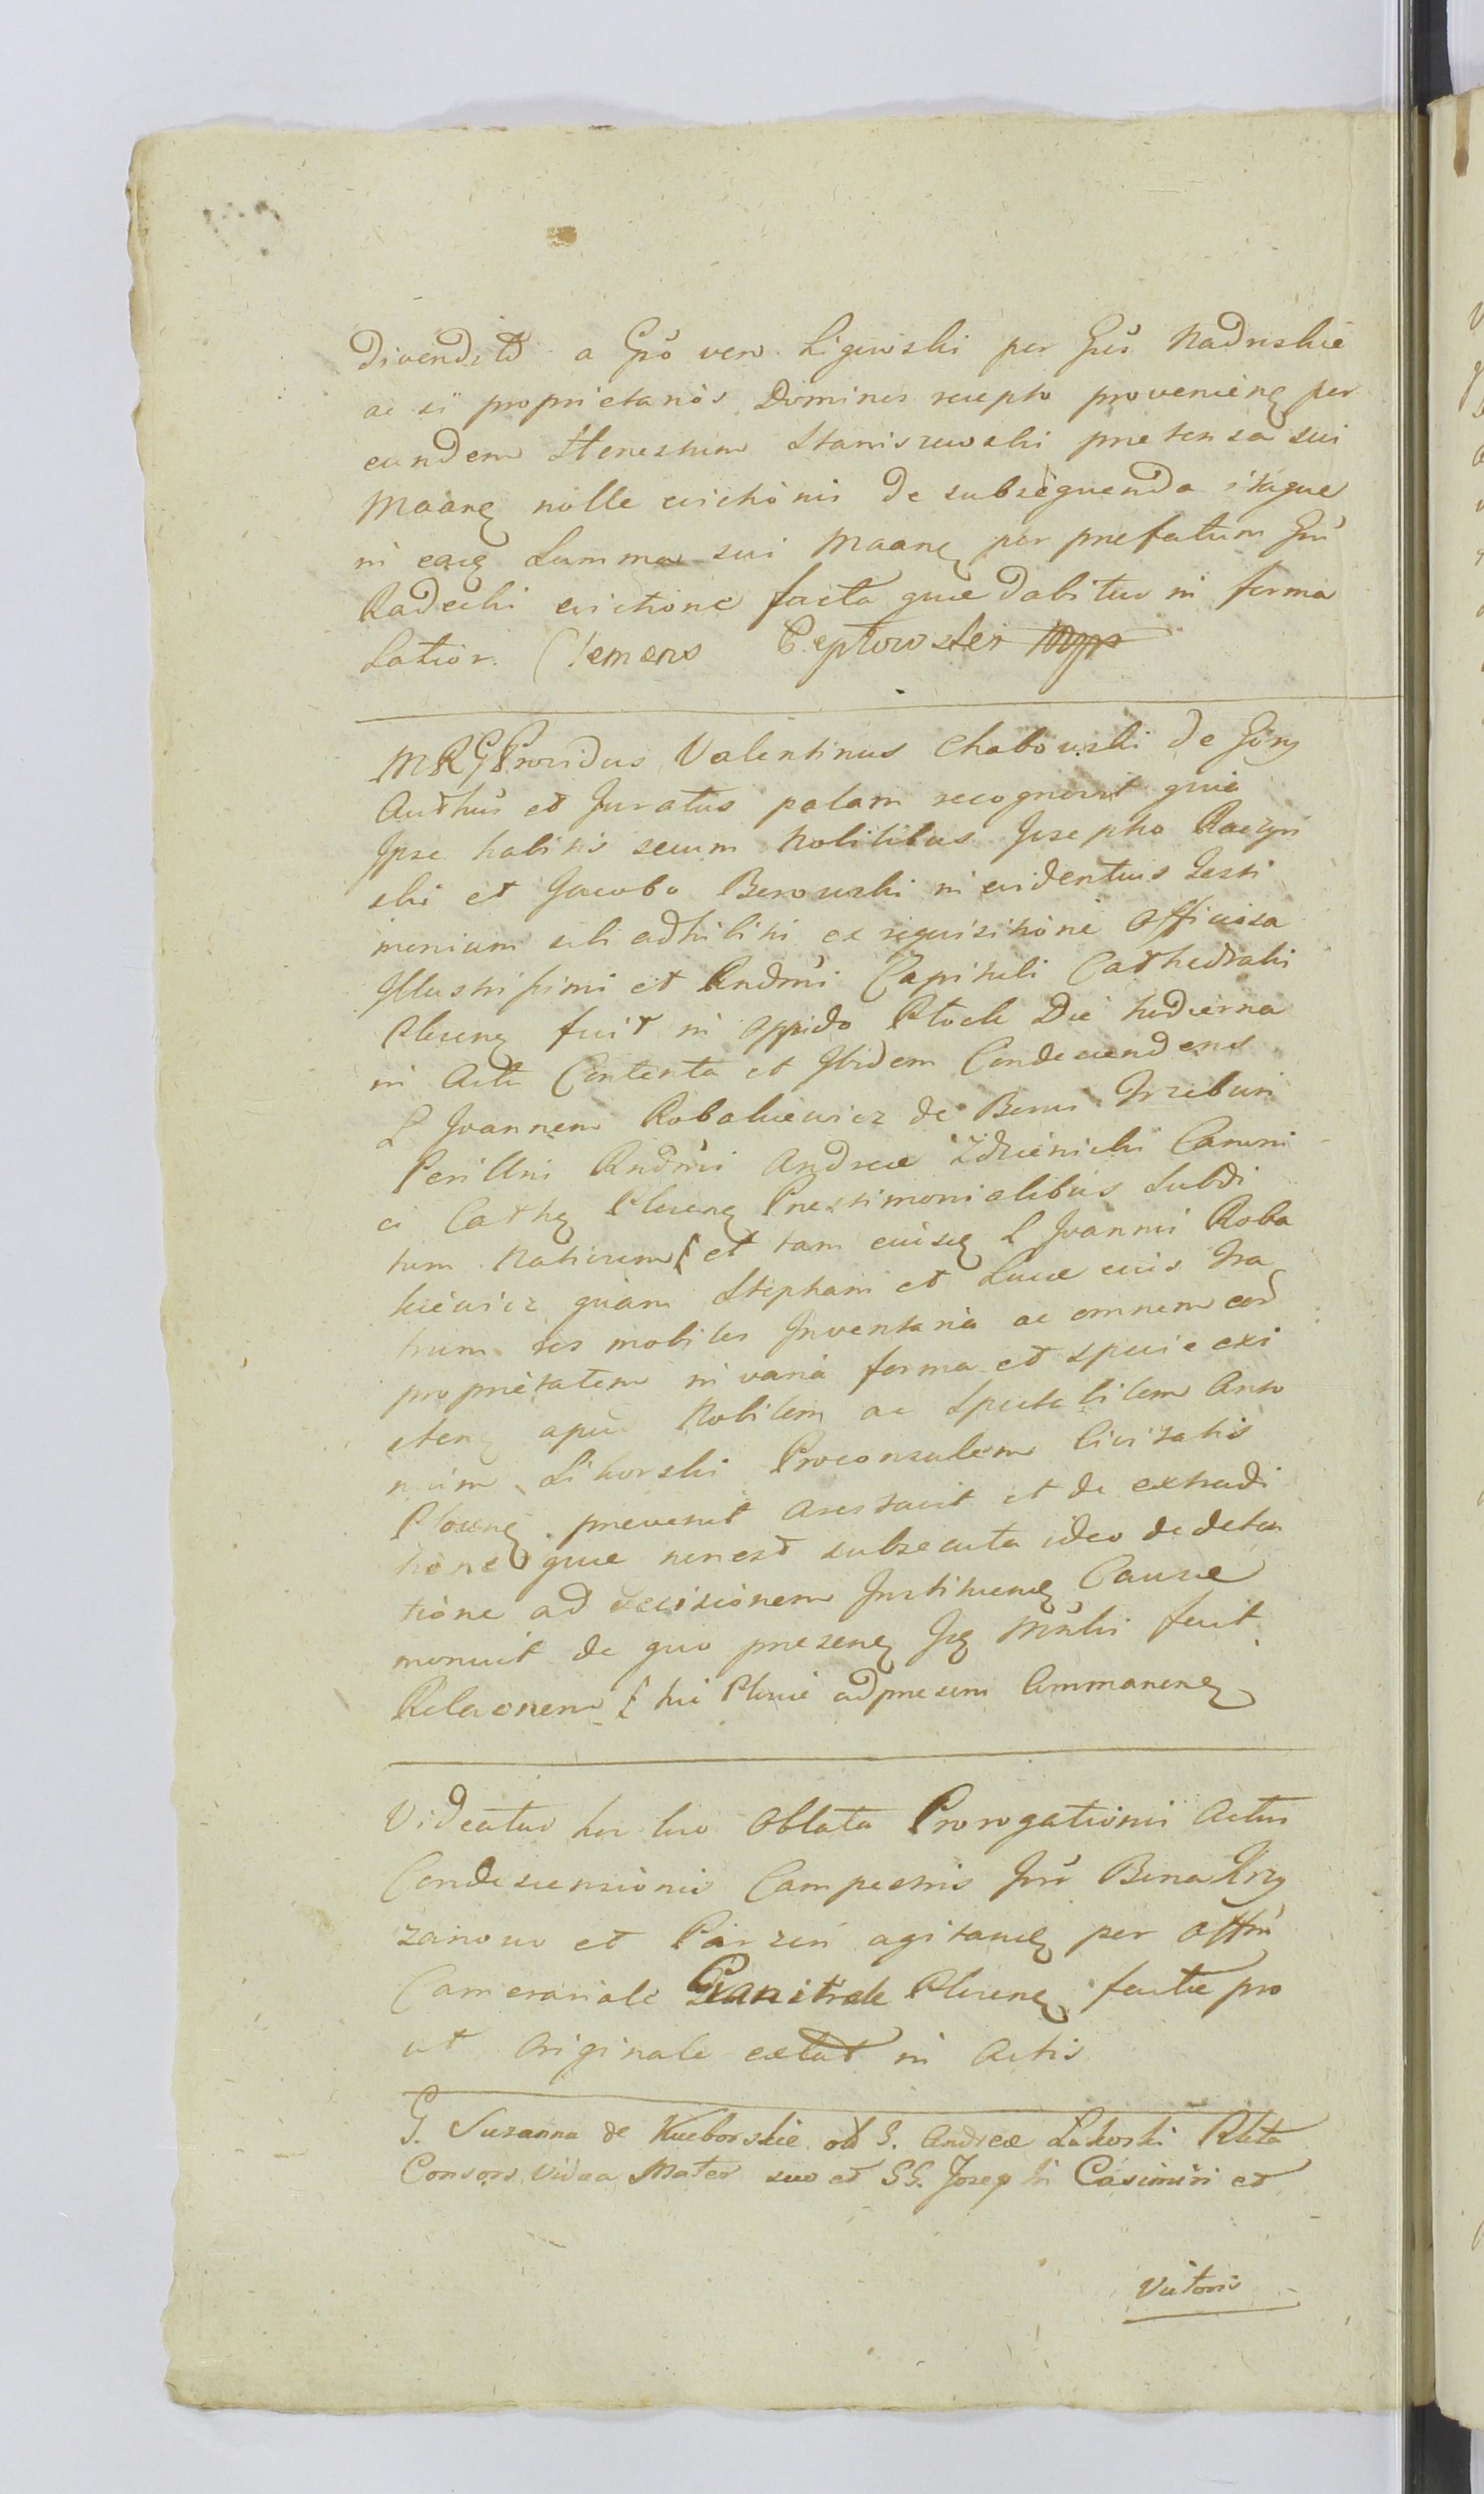 divendit a Gso vero Ligowski per Gsos Nadrskie
ac si proprietarios Dominos recepto provenieng per
eundem Honestum Staniszewski pretensa sui
Maang nolle evictionis de subsequenda itaque
in eaq Summa sui Maang per prefatum Gsu
Radecki evictione facta que dabitur in forma
Latior. Clemens Ceptowski mpp
MRG Providus Valentinus Chabowski de Góry
Authus et Juratus palam recognovit quia
Ipse habitis secum Nobilibus Josepho Raczyn
ski et Jacobo Berowski in evidentius Testi
monium sibi adhibitis ex requisitione Officiosa
Illustrissimi et Rndmi Capituli Cathedralis
Plceng fuit in oppido Płock Die hodierna
in Actu Contenta et Ibidem Condescendens
L Joannem Robakiewicz de Bonis Trzebun
Perillris Rndmi Andreae Zdzienicki Canoni
ci Cathg Plceng Prestimonialibus Subdi
tum Nativum et tam euisq L Joannis Roba
kiewicz quam Stephani et Lucae eius Fra
trum res mobiles Inventaria ac omnem eor
proprietatem in varia forma et specie exi
steng apud Nobilem ac Spectabilem Anto
nium Sikorski Proconsulem Civitatis
Plceng prevenit arestavit et de extradi
tione que non est subsecuta ideo de deten
tione ad decisionem Institueng Causae
monuit de quo preseng Jsg Mnlis fecit
Relaonem hic Plociae ad presens Commaneng
Videatur hoc loco Oblata Prorogationis Actus
Condescensionis Campestris Inr Bona Krzy
zanowo et Parzen agitandg per Offm
Camerariale Granitiale Plceng factae pro
ut Originale extat in Actis
G. Suzanna de Kucborskie olt G. Andreae Lakoski Rlta
Consors Vidua Mater suo et GG. Josephi Casimiri et
Victoris